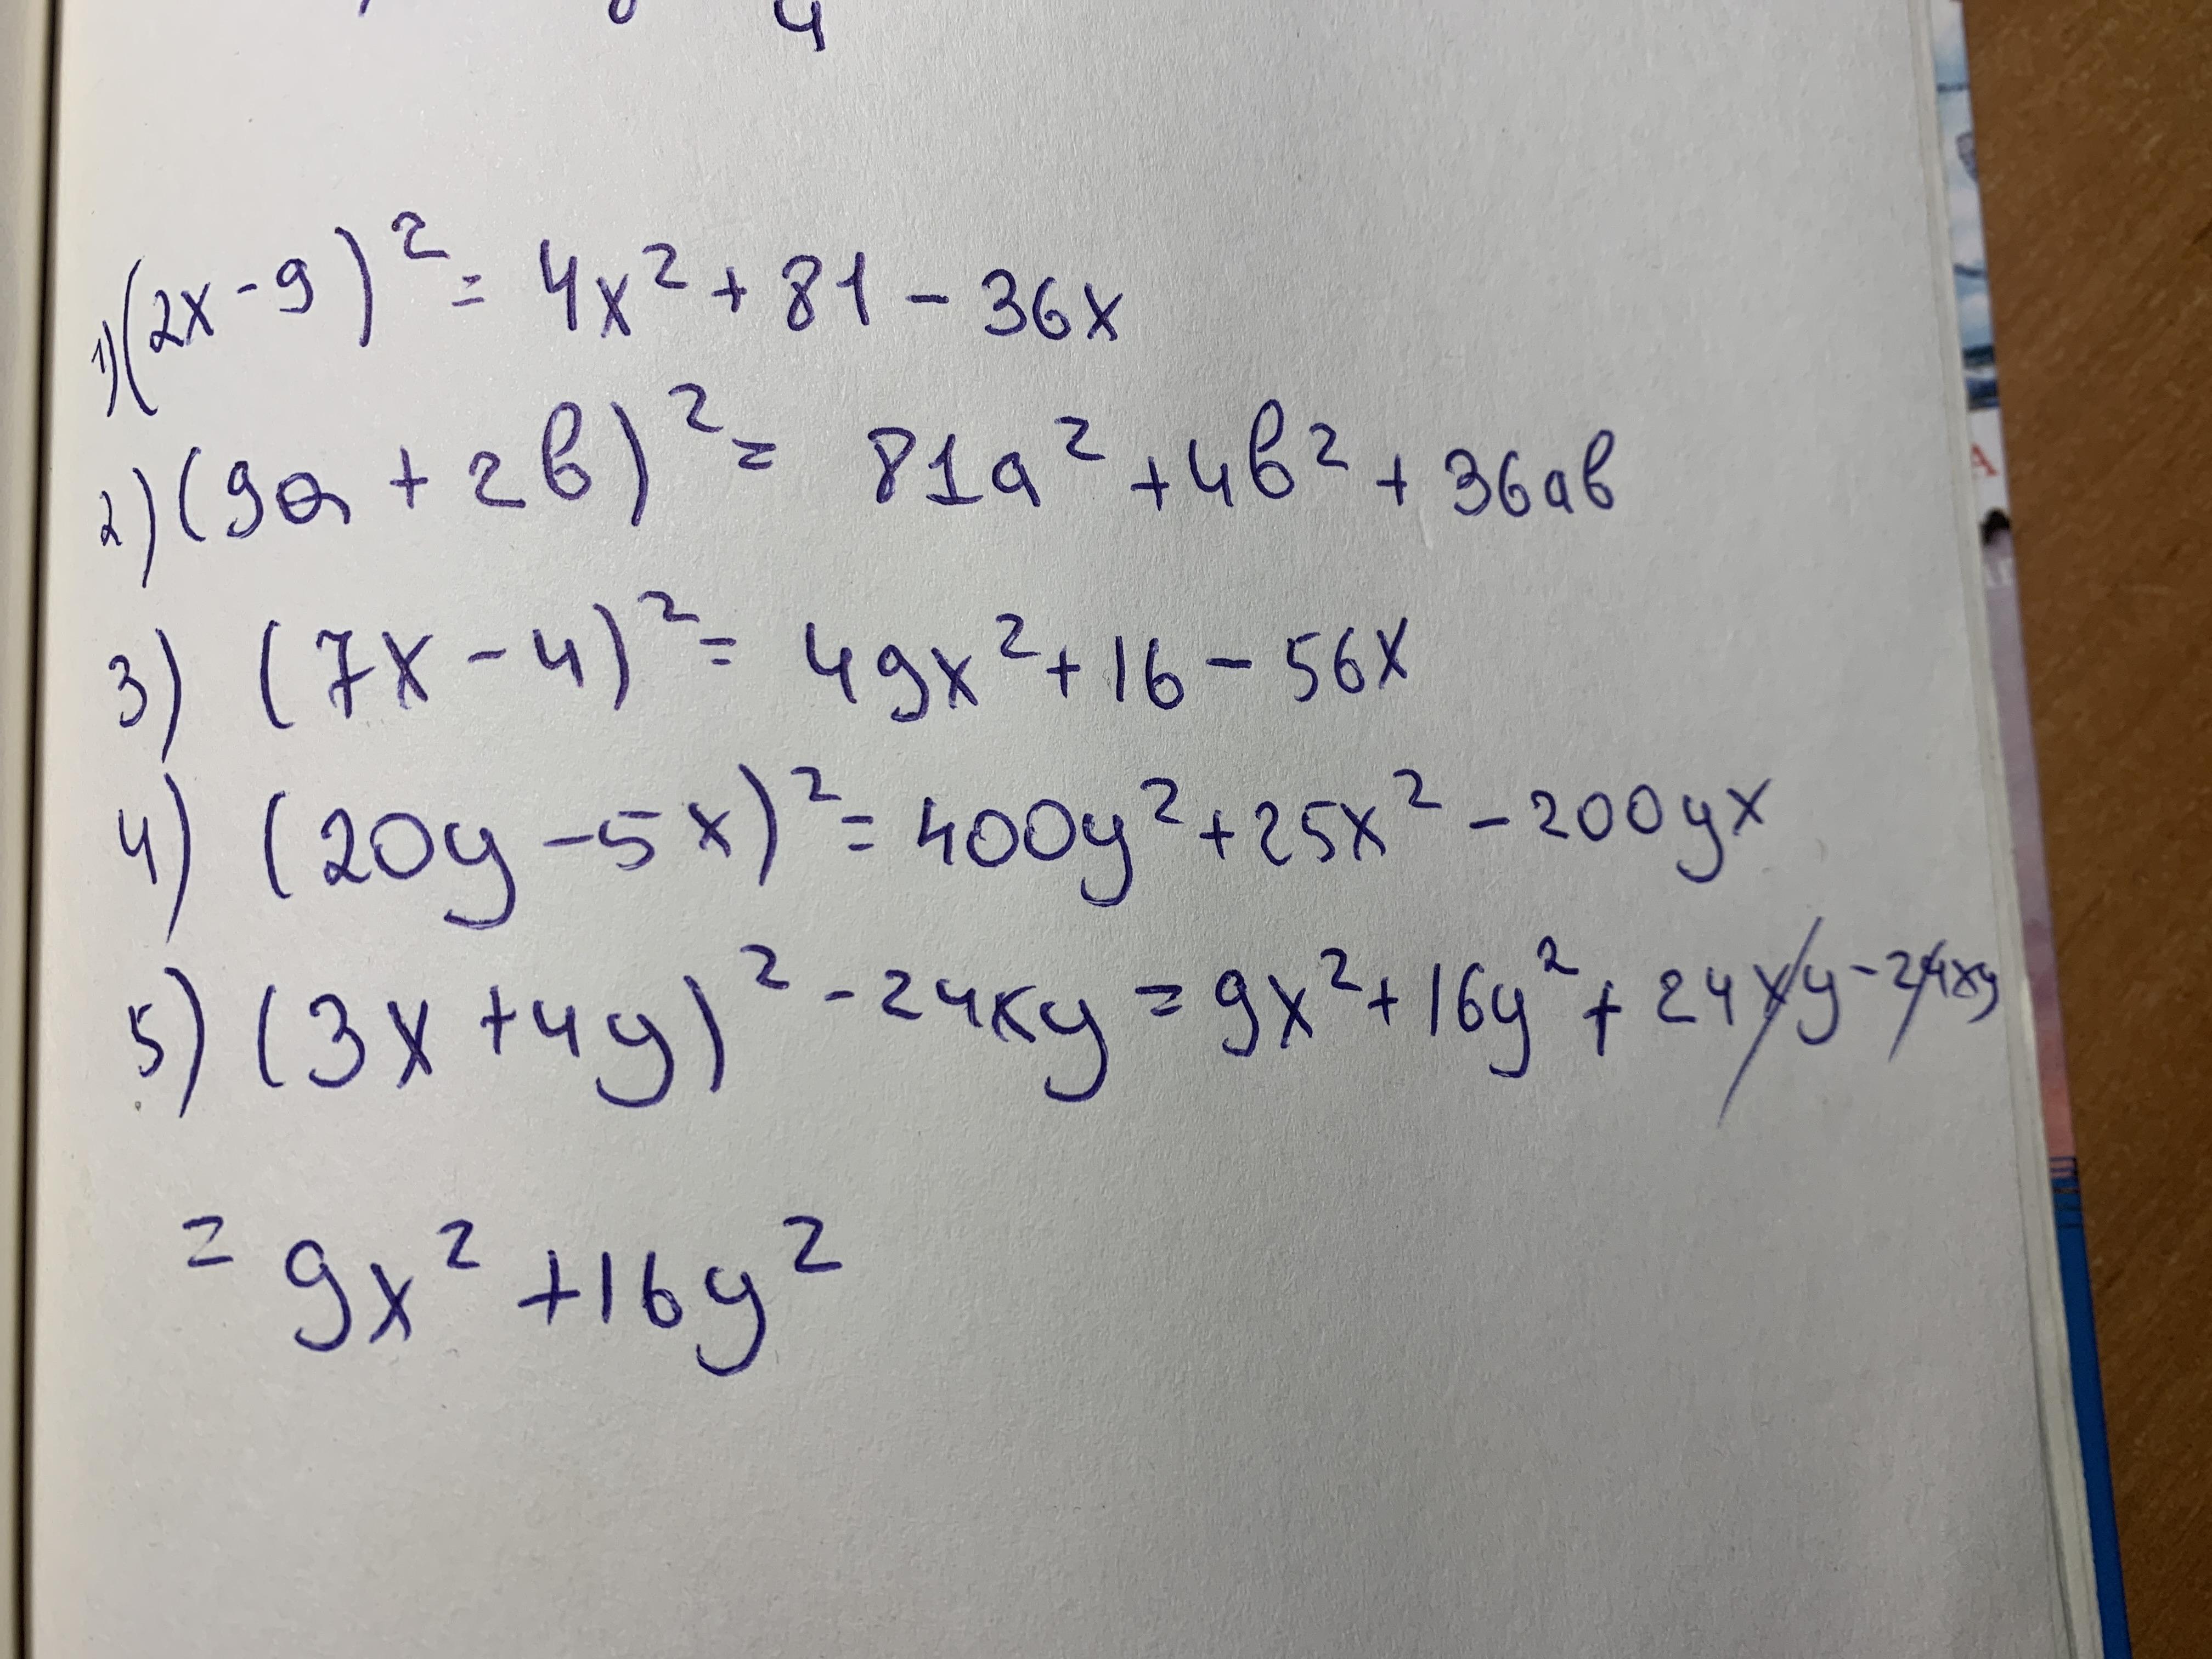 4
1) (2x - 9)² = 4x² + 81 - 36x
2) (9a + 2b)² = 81a² + 4b² + 36ab
3) (7x - 4)² = 49x² + 16 - 56x
4) (20y - 5x)² = 400y² + 25x² - 200yx
5) (3x + 4y)² - 24xy = 9x² + 16y² + 24xy - 24xy
= 9x² + 16y²
A